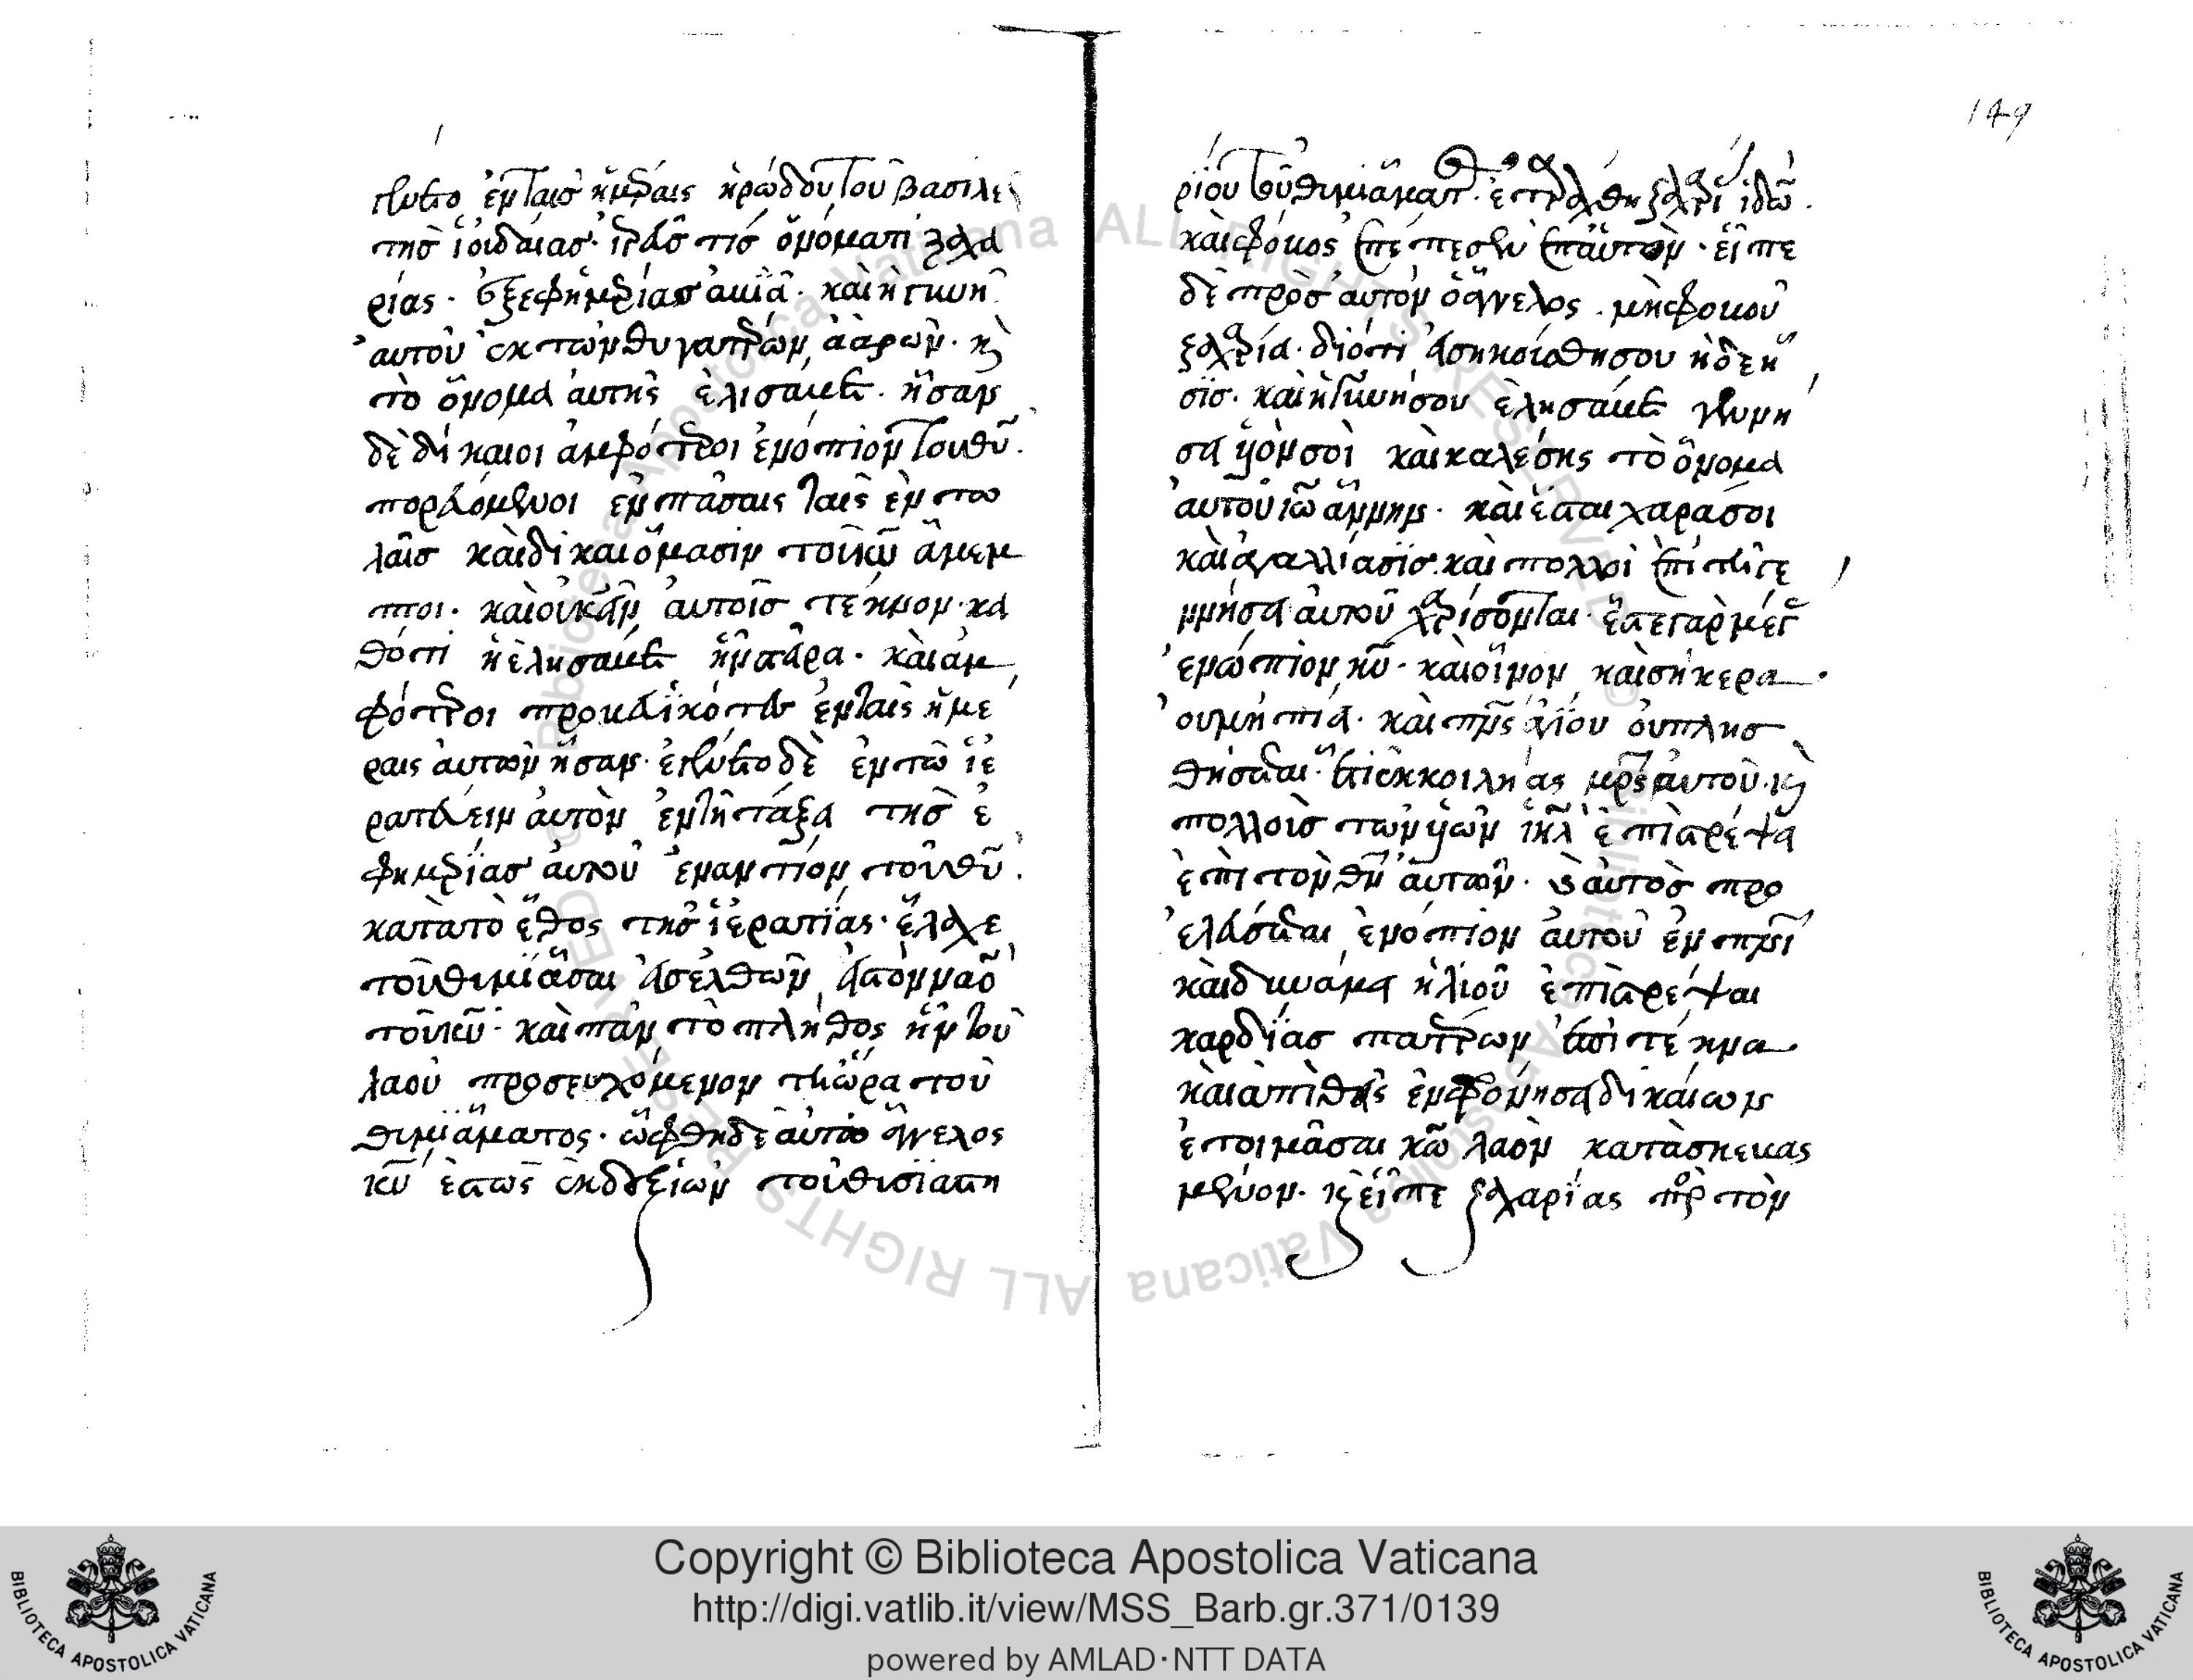 γένετο ἐν ταῖς ἡμέραις ἡρώδου του βασιλε
της ϊουδαίας· ϊερεύς τις ὀνόματι ζαχα
ρίας· ἐξ ἐφημερίας ἀβιᾶ· καὶ ἡ γυνὴ
αὐτοῦ ἐκ τῶν θυγατέρων ἀαρών· κ(αὶ)
τὸ ὄνομα αὐτῆς ἐλισάβετ· ἦσαν
δὲ δίκαιοι ἀμφότεροι ἐνόπιον του θ̅υ̅·
πορευόμενοι ἐν πάσαις ταῖς ἐντο
λαῖς καὶ δικαιόμασιν τοῦ κ̅υ̅ ἄμεμ
πτοι· καὶ οὐκ ἦν αὐτοῖς τέκνον· κα
θότι ἡ ἐλησάβετ ἦν στεῖρα· καὶ ἀμ
φότεροι προβεβικότες ἐν ταῖς ἡμέ
ραις αὐτῶν ἦσαν· ἐγένετο δὲ ἐν τῶ ἱε
ρατεύειν αὐτὸν ἐν τῆ τάξει τῆς ἐ
φημερίας αὐτοῦ ἔναντίον τοῦ θ̅υ̅·
κατὰ τὸ ἔθος τῆς ἱερατίας· ἔλαχε
τοῦ θιμιᾶσαι εἰσελθὼν εἰς τὸν ναὸ
τοῦ κ̅υ̅· καὶ πᾶν τὸ πλήθος ἦν τοῦ
λαοῦ προσευχόμενον τῆ ὥρα τοῦ
θιμιάματος· ὤφθη δὲ αὐτῶ ἄγγελος
κ̅υ̅ ἑστὼς ἐκ δεξειῶν τοῦ θισϊαστη
149
ρίου τοῦ θιμιάματ· ἐταράχθη ζαχαρί ἰδών·
καὶ φόβος ἐπέπεσεν ἐπ αὐτὸν· εἶπε
δὲ πρὸς αὐτὸν ὁ ἄγγελος· μὴ φοβοῦ
ζαχαρία· διότι εἰσηκούσθη σου ἡ δεη
σϊς· καὶ ἡ γυνή σου ἐλησάβετ γεννη
σει υἱὸν σοὶ καὶ καλέσης τὸ ὄνομα
αὐτοῦ ἰω̅άννην· καὶ ἔσται χαρά σοι
καὶ ἀγαλλίασϊς· καὶ πολλοὶ ἐπὶ τῆ γε
ννήσει αὐτοῦ χαρίσονται· ἔσται γὰρ μέγ
ἐνώπιον κ̅υ̅· καὶ οἶνον καὶ σήκερα
οὐ μὴ πίει· καὶ πν̅ς ἁγίου ὁυ πλησ
θήσεται· ἔτι ἐκ κοιλήας μρ̅ς αὐτοῦ· κ(αὶ)
πολλοῖς τῶν υἱῶν ἰη̅λ ἐπιστρέψει
ἐπὶ τὸν θ̅ν̅ αὐτῶν· κ(αὶ) αὐτὸς προ
ελεύσεται ἐνόπιον αὐτοῦ ἐν πν̅ι
καὶ δυνάμει ἡλιοῦ ἐπιστρέψαι
καρδίας πατέρων ἐπὶ τέκνα
καὶ ἀπιθεῖς ἐν φρονήσει δικαίων
ἑτοιμᾶσαι κ̅ω̅ λαὸν κατασκευας
μένον· κ(αὶ) εἶπε ζαχαρίας πρὸς τὸν
Copyright © Biblioteca Apostolica Vaticana
http://digi.vatlib.it/view/MSS_Barb.gr.371/0139
powered by AMLAD·NTT DATA